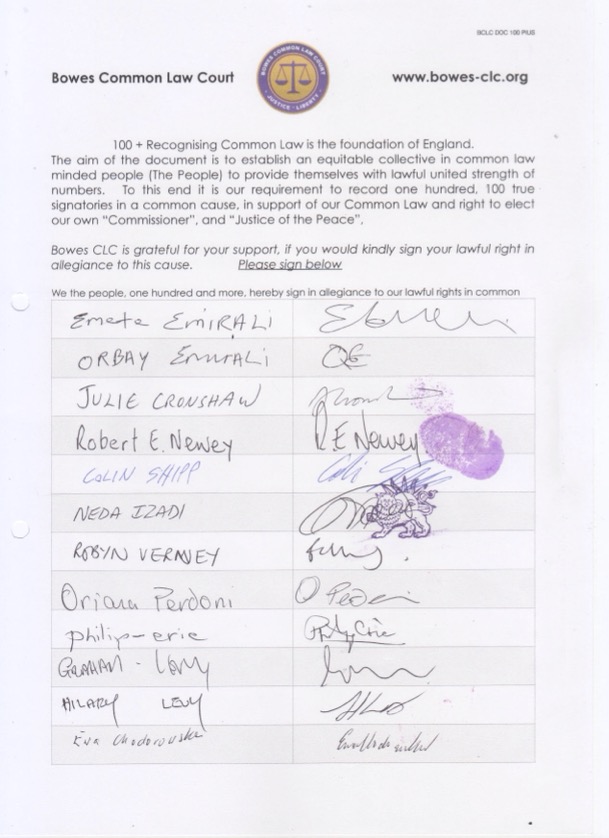 BCLC DOC 100 PlUS
Bowes Common Law Court
BOWES COMMON LAW COURT
JUSTICE - LIBERTY
www.bowes-clc.org
100 + Recognising Common Law is the foundation of England.
The aim of the document is to establish an equitable collective in common law
minded people (The People) to provide themselves with lawful united strength of
numbers. To this end it is our requirement to record one hundred, 100 true
signatories in a common cause, in support of our Common Law and right to elect
our own “Commissioner”, and “Justice of the Peace”,
Bowes CLC is grateful for your support, if you would kindly sign your lawful right in
allegiance to this cause. Please sign below
We the people, one hundred and more, hereby sign in allegiance to our lawful rights in common
Emete EMIRALI
ORBAY EMIRALI OE
JULIE CRONSHAW
Robert E. Newey R.E Newey
COLIN SHIPP
NEDA IZADI
ROBYN VERNEY
Oriana Perdoni
philip-eric
GRAHAM - Levy
HILARY LEVY
Eva Chodorowska